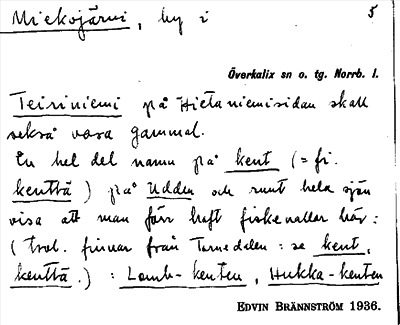 Miekojärvi, by i 5
Överkalix sn o. tg. Norrb. l.
Teiriniemi på Hietaniemisidan skall
också vara gammal.
En hel del namn på kent (= fi.
kenttä) på Udden och runt hela sjön
visa att man förr haft fiskevallar här:
(trol. finnar från Tornedalen: se kent,
kenttä.) : Lamb-kenten, Hukka-kenten
EDVIN BRÄNNSTRÖM 1936.